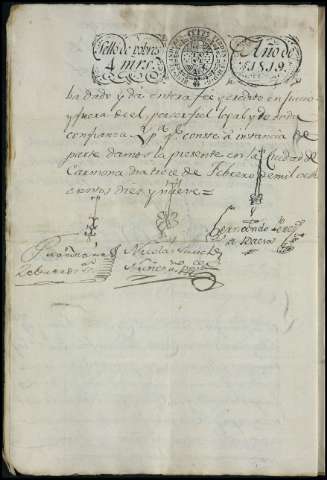 Sello de pobres
4 mrs.
Año de
1819.
ha dado y dá entera fee y credito en juicio
y fuera de el, por ser fiel, legal y de toda
confianza. Y pª qe conste á instancia de
parte damos la presente en la Ciudad de
Carmona dia trece de Febrero de mil ocho
cientos diez y nueve =
Nicolas
Nuñez
Fernando